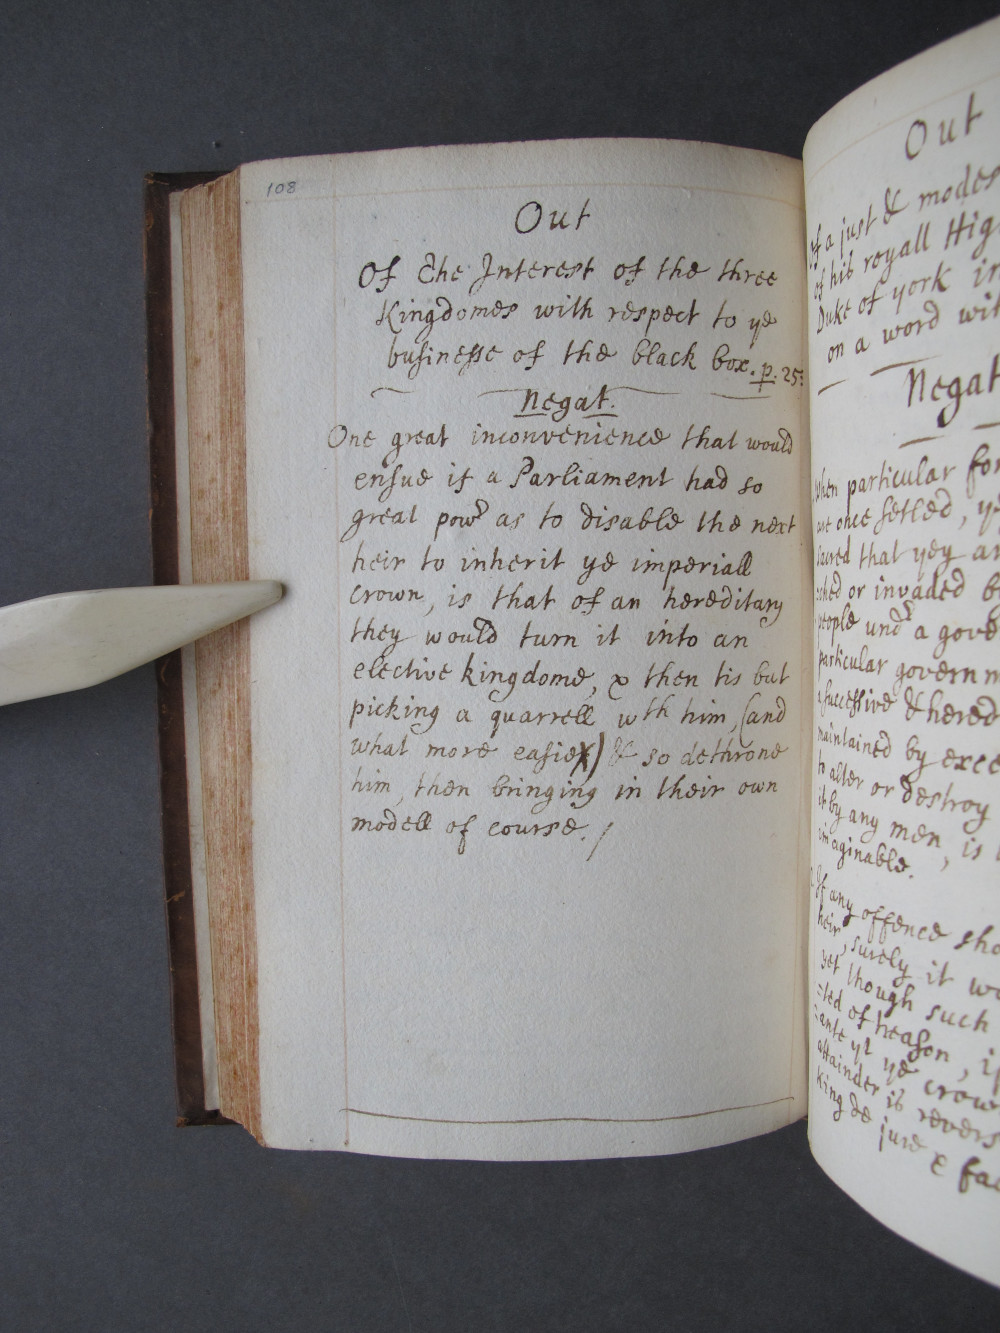 108
Out
Of The Interest of the three
Kingdomes with respect to ye
businesse of the black box. p. 25:
Negat.
One great inconvenience that would
ensue if a Parliament had so
great powr as to disable the next
heir to inherit ye imperiall
crown, is that of an hereditary
they would turn it into an
elective kingdome, & then tis but
picking a quarrell wth him, (and
what more easie) & so dethrone
him, then bringing in their own
modell of course. /
Out
Of a just & modes
of his royall Hig
Duke of york in
on a word wi
Negat
When particular for
are once setled, y
sacred that yey ar
ched or invaded b
people undr a gove
particular governm
a successive & hered
maintained by exce
to alter or destroy
it by any men, is
imaginable.
If any offence sho
heir, surely it wo
yet though such
=ted of treason, i
ante yt ye crow
attainder is revers
King de jure & fac